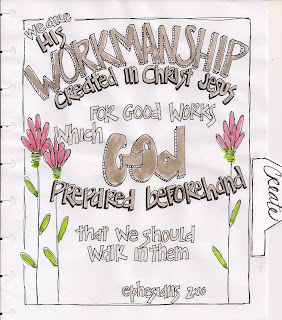 we are
His
WORKMANSHIP
created in Christ Jesus
FOR GOOD WORKS
which
God
prepared beforehand
that we should
walk in them
ephesians 2:10
Create